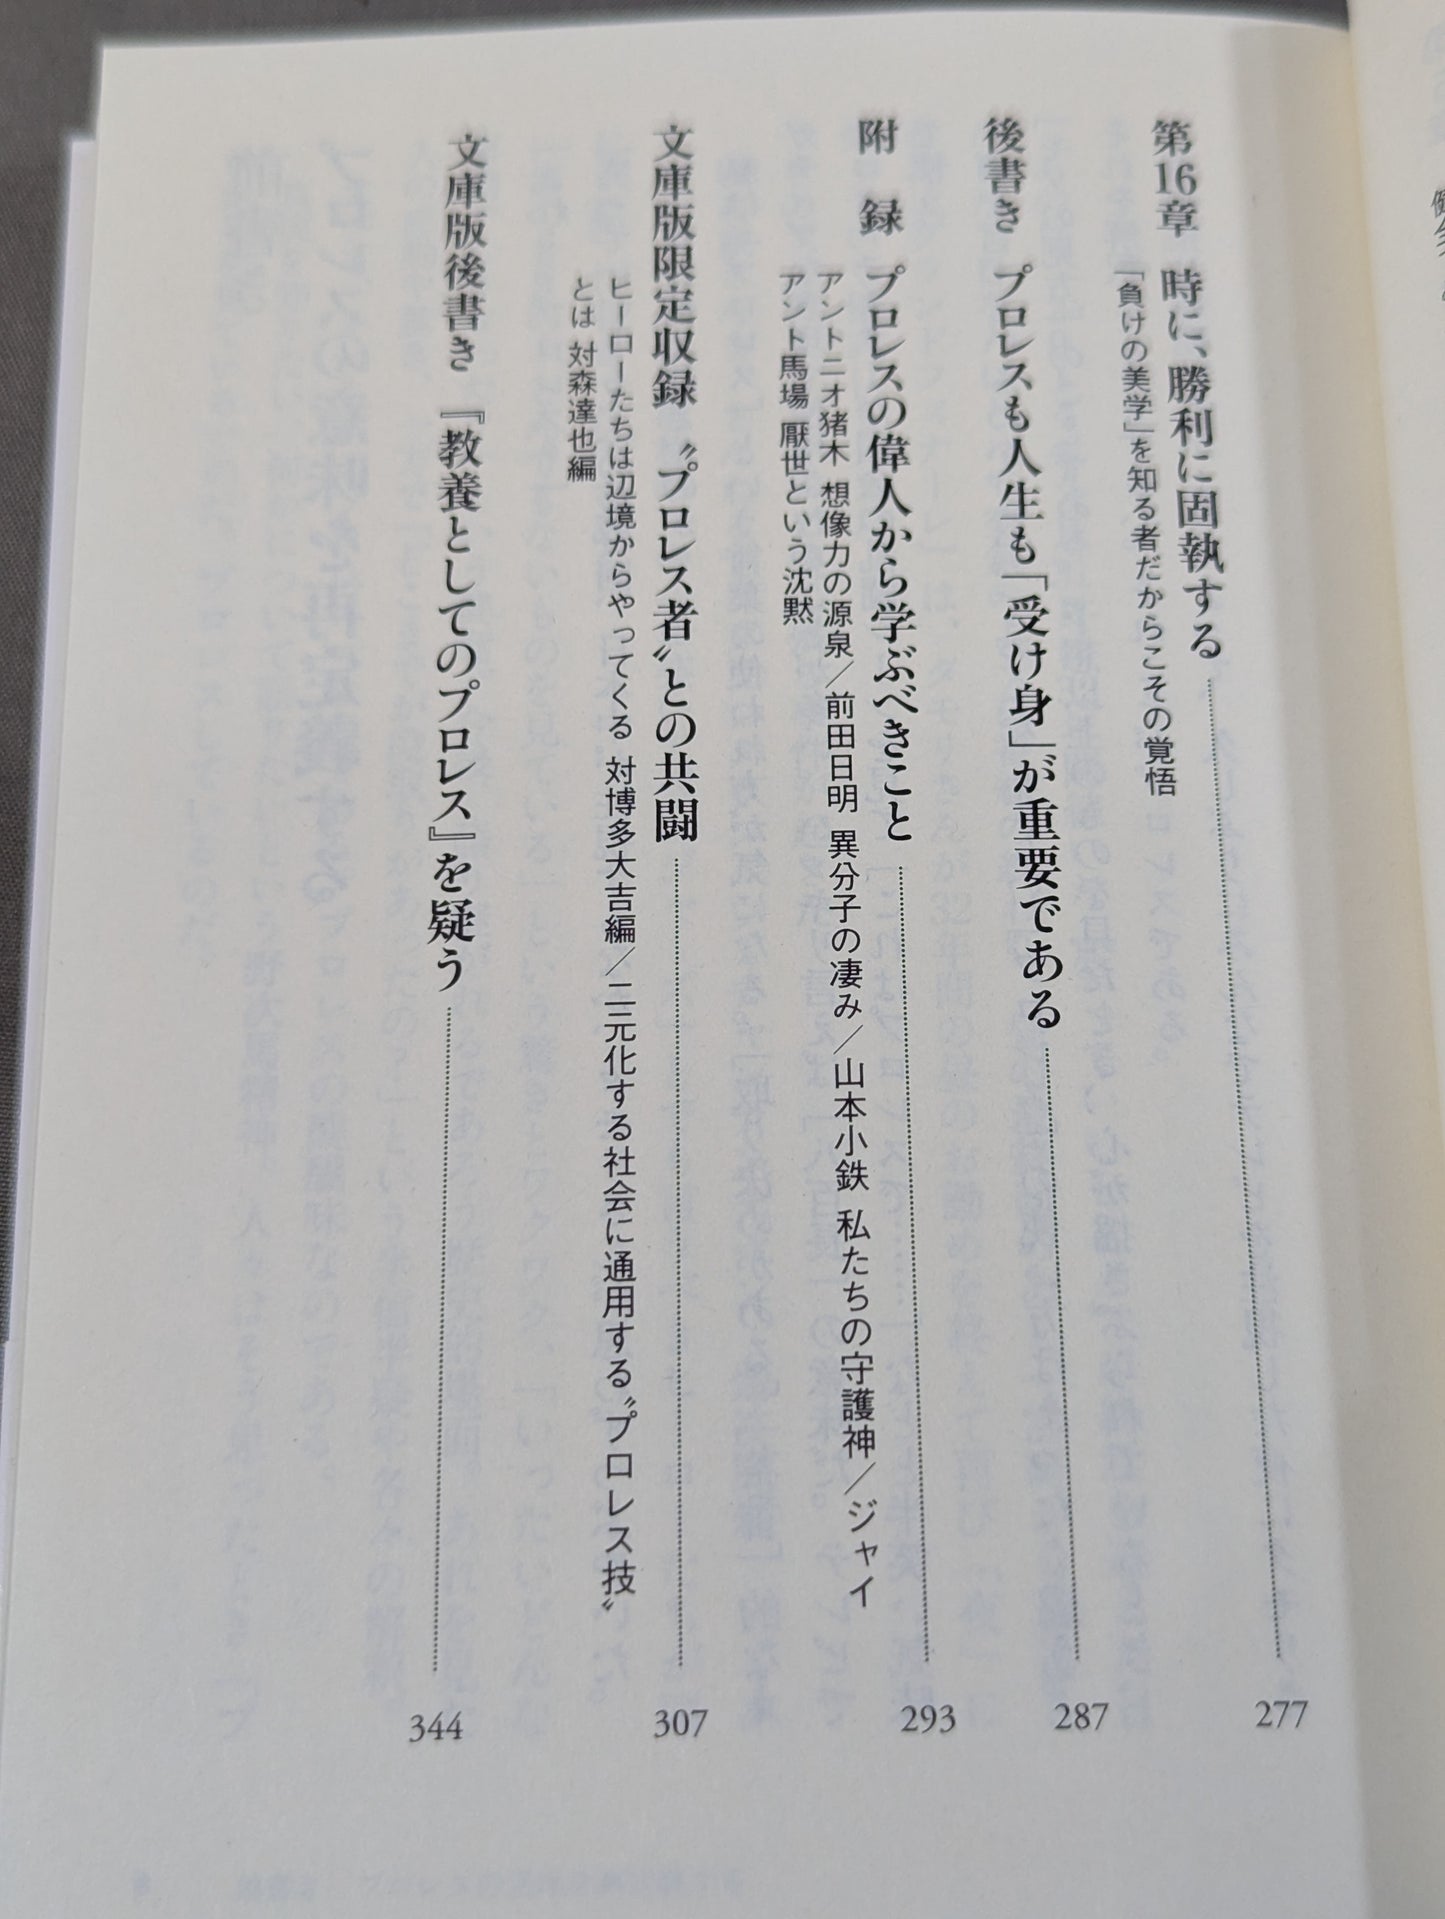 第16章 時に、勝利に固執する 277
「負けの美学」を知る者だからこその覚悟
後書き プロレスも人生も「受け身」が重要である 287
附　録 プロレスの偉人から学ぶべきこと 293
アントニオ猪木 想像力の源泉／前田日明 異分子の凄み／山本小鉄 私たちの守護神／ジャイ
アント馬場 厭世という沈黙
文庫版限定収録 〝プロレス者〟との共闘 307
ヒーローたちは辺境からやってくる 対博多大吉編／二元化する社会に通用する〝プロレス技〟
とは 対森達也編
文庫版後書き 『教養としてのプロレス』を疑う 344